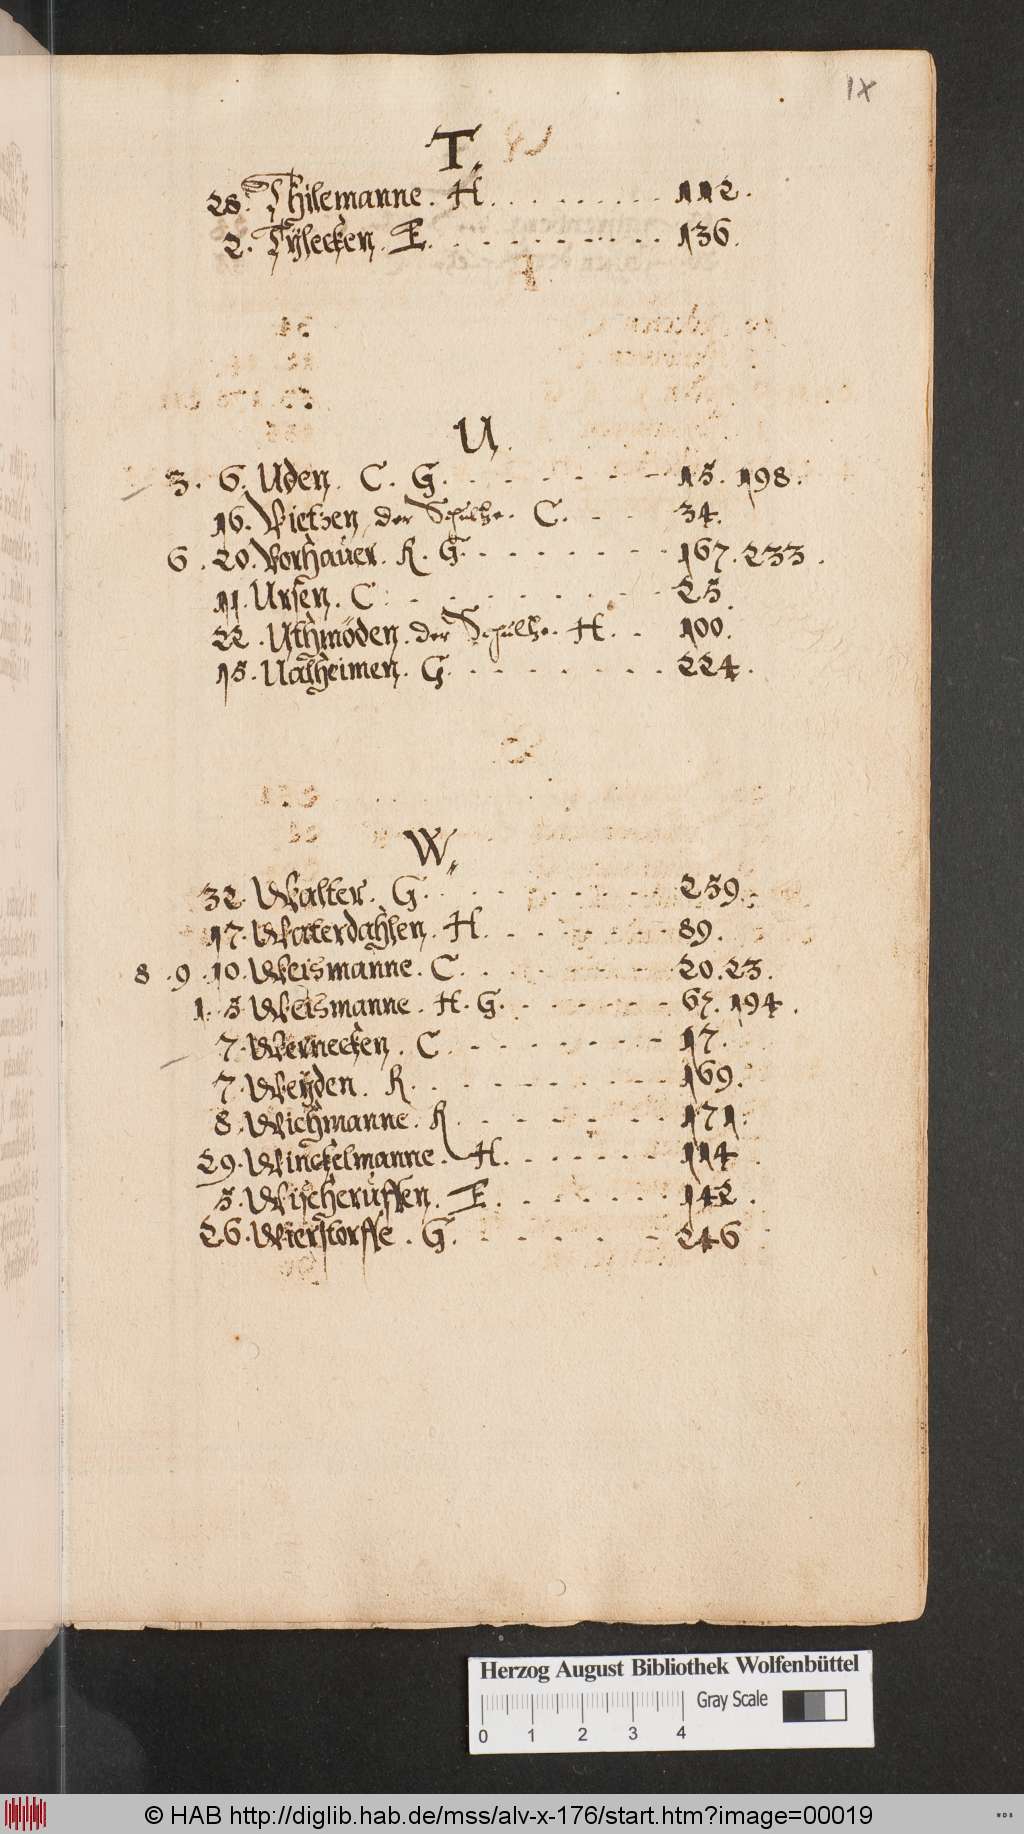 IX
T.
28. Thilemanne. H. . . . . . . . . 112.
2. Tÿlecken. E. . . . . . . . . . 136.
U.
3. 6. Uden. C. G. . . . . . . 15. 198.
16. Vietzen der Schultze. C. . . 34.
6. 20. Vorhauer. R. G. . . . . . . 167. 233.
11. Ursen. C. . . . . . . . . 25.
22. Uthmöden. der Schultze. H. . . 100.
15. Nalheimen. G. . . . . . . . 224.
W.
32. Walter. G. . . . . . . . . 259.
17. Waterdahlen. H. . . . . . . 89.
8. 9. 10. Weismanne. C. . . . . . . . 20. 23.
1. 5. Weismanne. H. G. . . . . . . 67. 194.
7. Wernecken. C. . . . . . . . 17.
7. Weÿden. R. . . . . . . . . 169.
8. Wichmanne. R. . . . . . . 171.
29. Winckelmanne. H. . . . . . . 114
5. Wischeruffen. E. . . . . . . 142.
26. Wierstorffe. G. . . . . . . 246
Herzog August Bibliothek Wolfenbüttel
Gray Scale
0 1 2 3 4
© HAB http://diglib.hab.de/mss/alv-x-176/start.htm?image=00019